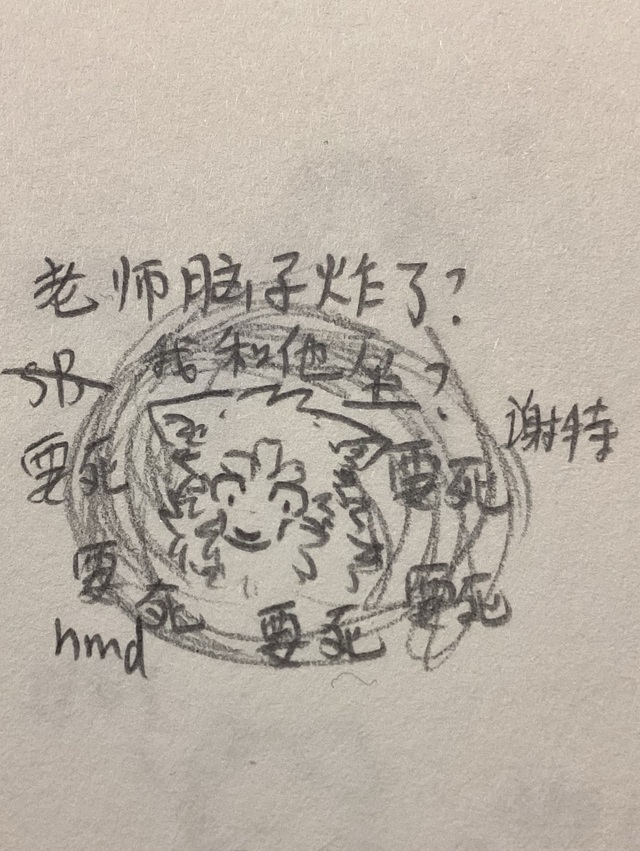 老师脑子炸了？
SB 我和他坐？
谢特
要死 要死
要死 要死
要死
nmd